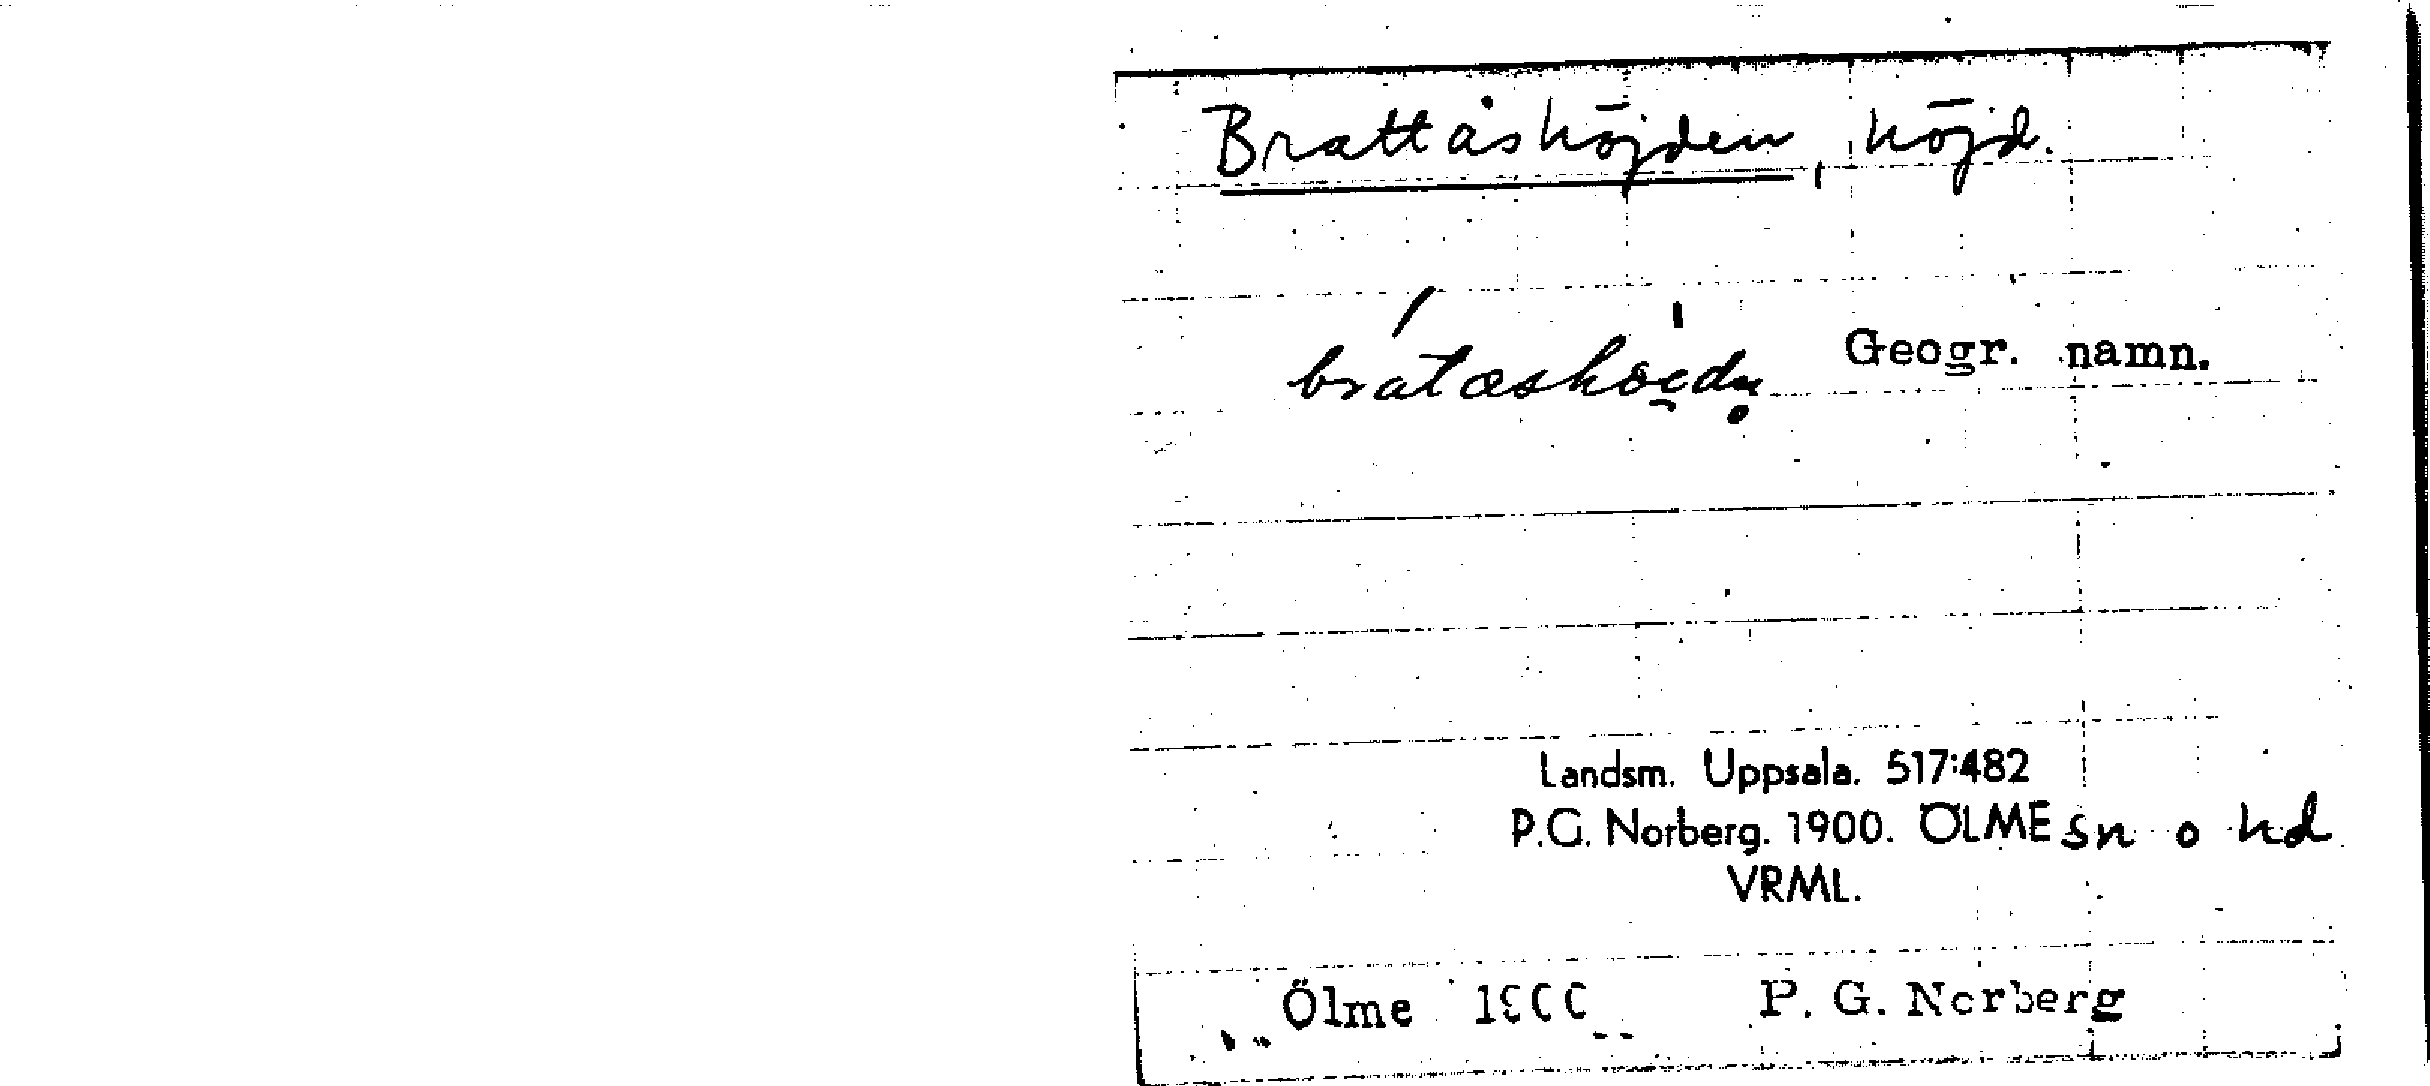 Brattåshöjden, höjd.
Geogr. namn.
Landsm. Uppsala. 517:482
P.G. Norberg. 1900. ÖLME sn o hd
VRML.
Ölme 1900 P. G. Norberg